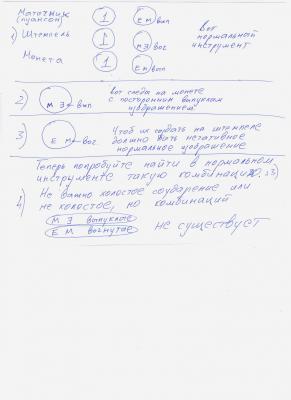 Маточник (пуансон) 1 Е М вып
1) Штемпель 1 М Э вог
Монета 1 Е М вып
Вот
нормальный
инструмент
2) М Э вып
вот следы на монете
с посторонним выпуклым
изображением
3) Е М вог.
Чтоб их создать на штемпеле
должно быть негативное
нормальное изображение
Теперь попробуйте найти в нормальном
инструменте такую комбинацию
4) Не важно холостое соударение или
не холостое, но комбинаций
М Э выпуклое
Е М вогнутое
не существует